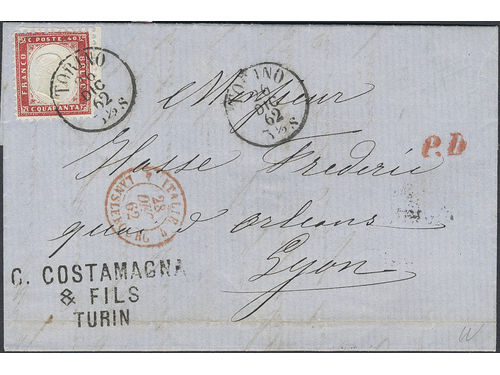 C. POSTE. 40
FRANCO
BOLLO
QUARANTA
TORINO
26
DIC
62
3½S
TORINO
26
DIC
62
3½S
Monsieur
P.D
Hasse Frederic
ITALIE
28
DEC
62
LANSLEBOURG
quai d'orleans
Lyon
C. COSTAMAGNA
& FILS
TURIN